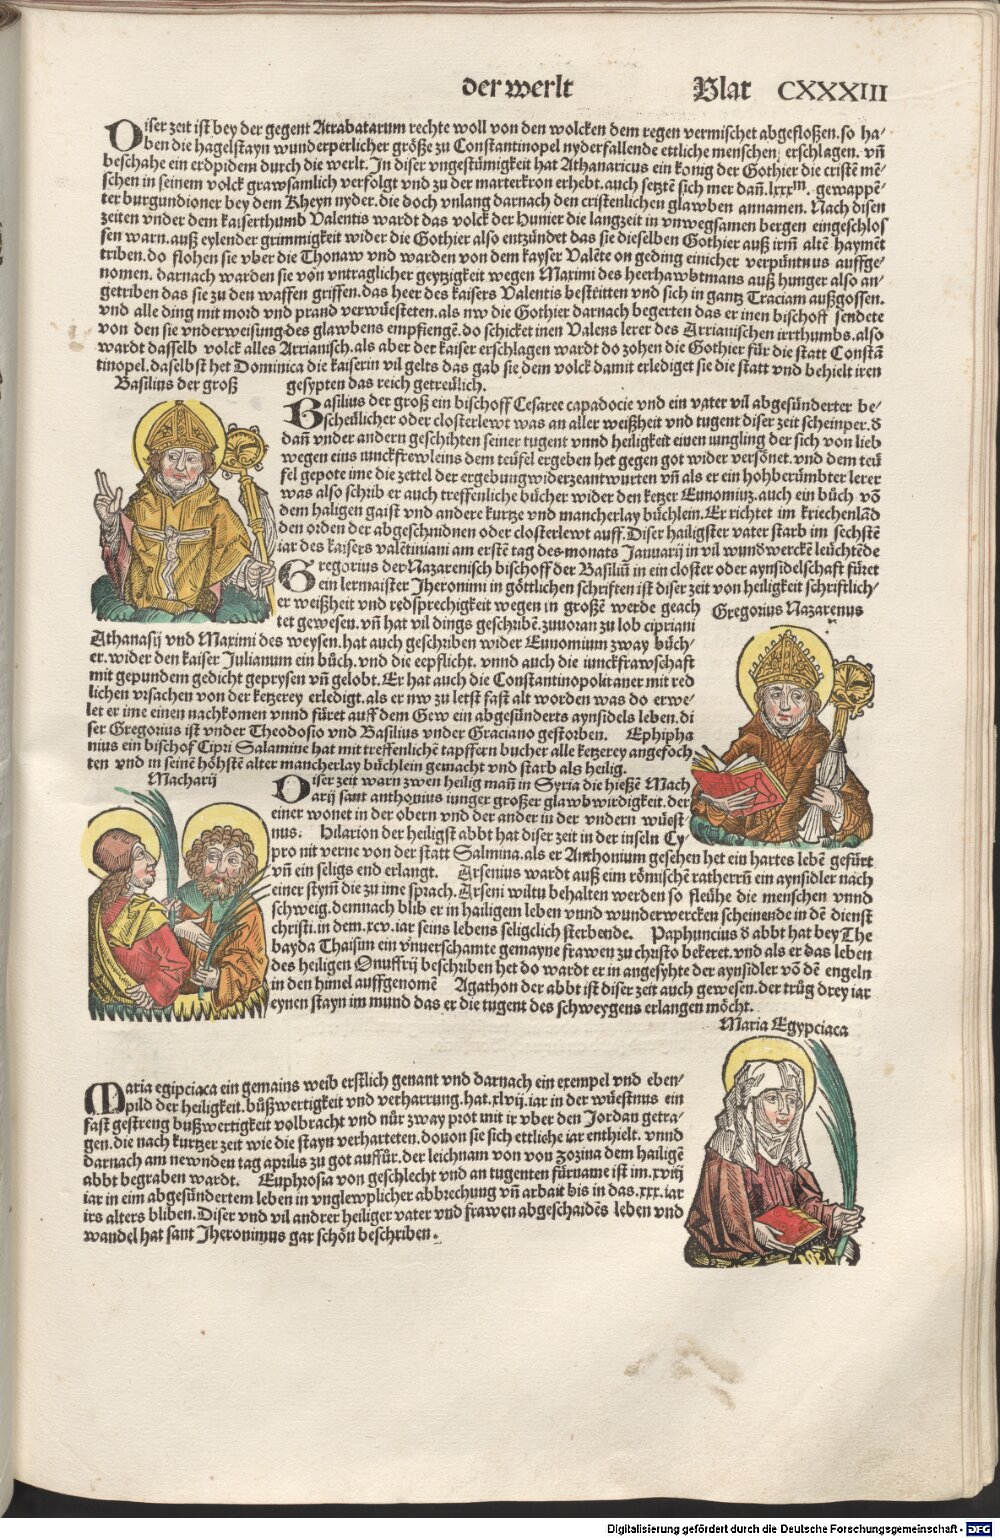 der werlt Blat CXXXIII
Diser zeit ist bey der gegent Atrabatarum rechte woll von den wolcken dem regen vermischet abgefloßen. so ha-
ben die hagelstayn wunderperlicher größe zu Constantinopel nyderfallende ettliche menschen erschlagen. vñ
beschahe ein erdpidem durch die werlt. In diser vngestümigkeit hat Athanaricus ein konig der Gothier die cristē mē-
schen in seinem volck grawsamlich verfolgt vnd zu der marterkron erhebt. auch setztē sich mer dañ. lxxxm. gewappē-
ter burgundioner bey dem Rheyn nyder. die doch vnlang darnach den cristenlichen glawben annamen. Nach disen
zeiten vnder dem kaiserthumb Valentis wardt das volck der Hunier die langzeit in vnwegsamen bergen eingeschlos
sen warn. auß eylender grimmigkeit wider die Gothier also entzündet das sie dieselben Gothier auß irm altē haymēt
triben. do flohen sie vber die Thonaw vnd warden von dem kayser Valēte on geding einicher verpüntnus auffge-
nomen. darnach warden sie von vntraglicher geytzigkeit wegen Maximi des heerhawbtmans auß hunger also an-
getriben das sie zu den waffen griffen. das heer des kaisers Valentis bestritten vnd sich in gantz Traciam außgossen.
vnd alle ding mit mord vnd prand verwüesteten. als nw die Gothier darnach begerten das er inen bischoff sendete
von den sie vnderweisung des glawbens empfiengē. do schicket inen Valens lerer des Arrianischen irrthumbs. also
wardt dasselb volck alles Arrianisch. als aber der kaiser erschlagen wardt do zohen die Gothier für die statt Constā
tinopel. daselbst het Dominica die kaiserin vil gelts das gab sie dem volck damit erlediget sie die statt vnd behielt iren
Basilius der groß gesypten das reich getreülich.
Basilius der groß ein bischoff Cesaree capadocie vnd ein vater vil abgesünderter be-
scheülicher oder closterlewt was an aller weißheit vnd tugent diser zeit scheinper. d
dañ vnder andern geschihten seiner tugent vnnd heiligkeit einen iungling der sich von lieb
wegen eins iunckfrewleins dem teüfel ergeben het gegen got wider versönet. vnd dem teü
fel gepote ime die zettel der ergebung widerzeantwurten vñ als er ein hohberümbter lerer
was also schrib er auch treffenliche bücher wider den ketzer Eunomiuz. auch ein büch vō
dem haligen gaist vnd andere kurtze vnd mancherlay büchlein. Er richtet im kriechenlād
den orden der abgeschnidnen oder closterlewt auff. Diser hailigster vater starb im sechstē
iar des kaisers valētiniani am erstē tag des monats Januarij in vil wundwerckē leüchtēde
Gregorius der Nazarenisch bischoff der Basiliū in ein closter oder aynsidelschaft füret
ein lermaister Jheronimi in göttlichen schriften ist diser zeit von heiligkeit schriftlich-
er weißheit vnd redsprechigkeit wegen in großē werde geach Gregorius Nazarenus
tet gewesen. vñ hat vil dings geschribē. zuuoran zu lob cipriani
Athanasij vnd Maximi des weysen. hat auch geschriben wider Eunomium zway büch-
er. wider den kaiser Julianum ein büch. vnd die eepflicht. vnnd auch die iunckfrawschaft
mit gepundem gedicht geprysen vñ gelobt. Er hat auch die Constantinopolitaner mit red
lichen vrsachen von der ketzerey erledigt. als er nw zu letst fast alt worden was do erwe-
let er ime einen nachkomen vnnd füret auff dem Gew ein abgesünderts aynsidels leben. di
ser Gregorius ist vnder Theodosio vnd Basilius vnder Graciano gestorben. Ephipha
nius ein bischof Cipri Salamine hat mit treffenlichē tapffern bucher alle ketzerey angefoch
ten vnd in seinē höhstē alter mancherlay büchlein gemacht vnd starb als heilig.
Macharij Diser zeit warn zwen heilig mañ in Syria die hießē Mach
arij sant anthonius iunger großer glawbwirdigkeit. der
einer wonet in der obern vnd der ander in der vndern wüest-
nus. Hilarion der heiligst abbt hat diser zeit in der inseln Cy-
pro nit verne von der statt Salmina. als er Anthonium gesehen het ein hartes lebē gefürt
vñ ein seligs end erlangt. Arsenius wardt auß eim römischē ratherrñ ein aynsidler nach
einer stym̄ die zu ime sprach. Arseni wiltu behalten werden so fleühe die menschen vnnd
schweig. demnach blib er in hailigem leben vnnd wunderwercken scheinende in dē dienst
christi. in dem. xcv. iar seins lebens seligclich sterbende. Paphuncius d abbt hat bey The
bayda Thaisim ein vnuerschamte gemayne frawen zu christo bekeret. vnd als er das leben
des heiligen Onuffrij beschriben het do wardt er in angesyhte der aynsidler vō dē engeln
in den himel auffgenomē Agathon der abbt ist diser zeit auch gewesen. der trüg drey iar
eynen stayn im mund das er die tugent des schweygens erlangen möcht.
Maria Egypciaca
Maria egipciaca ein gemains weib erstlich genant vnd darnach ein exempel vnd eben-
pild der heiligkeit. büßwertigkeit vnd verharrung. hat. xlvij. iar in der wüestnus ein
fast gestreng bußwertigkeit volbracht vnd nür zway prot mit ir vber den Jordan getra-
gen. die nach kurtzer zeit wie die stayn verharteten. douon sie sich ettliche iar enthielt. vnnd
darnach am newnden tag aprilis zu got auffür. der leichnam von von Zozina dem hailigē
abbt begraben wardt. Euphrosia von geschlecht vnd an tugenten fürname ist im. xviij
iar in eim abgesündertem leben in vnglewplicher abbrechung vñ arbait bis in das. xxx. iar
irs alters bliben. Diser vnd vil andrer heiliger vater vnd frawen abgeschaidēs leben vnd
wandel hat sant Jheronimus gar schön beschriben.
Digitalisierung gefördert durch die Deutsche Forschungsgemeinschaft - DFG